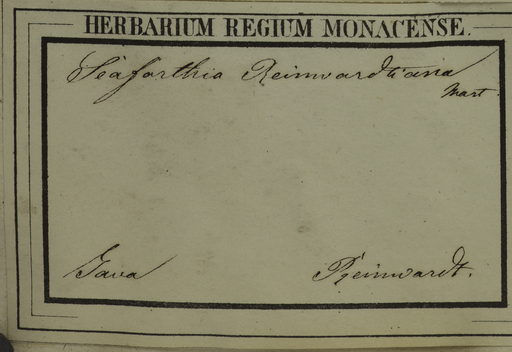 HERBARIUM REGIUM MONACENSE.
Seaforthia Reinwardtiana
Mart.
Java Reinwardt.